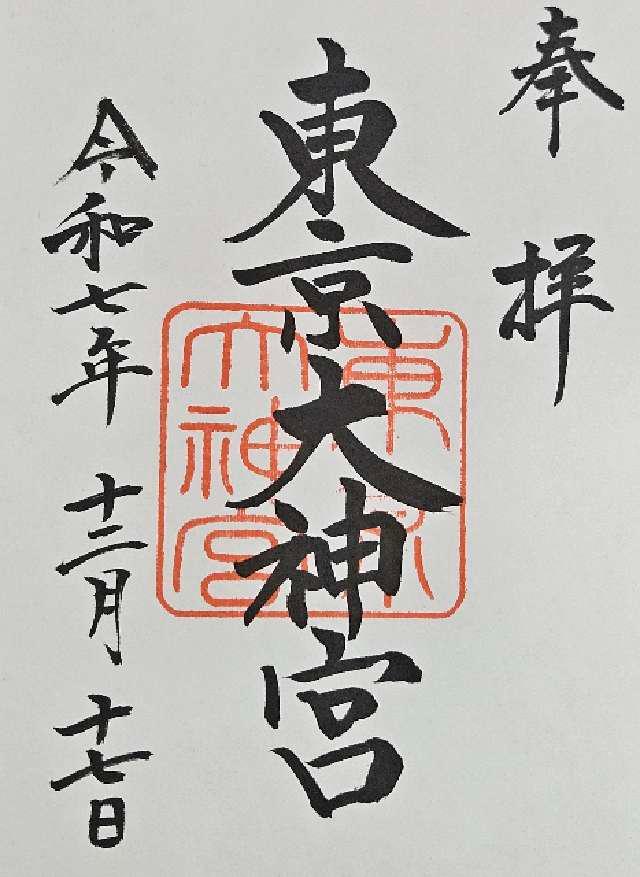 奉拝
東京大神宮
東京大神宮
令和七年 十二月 十七日